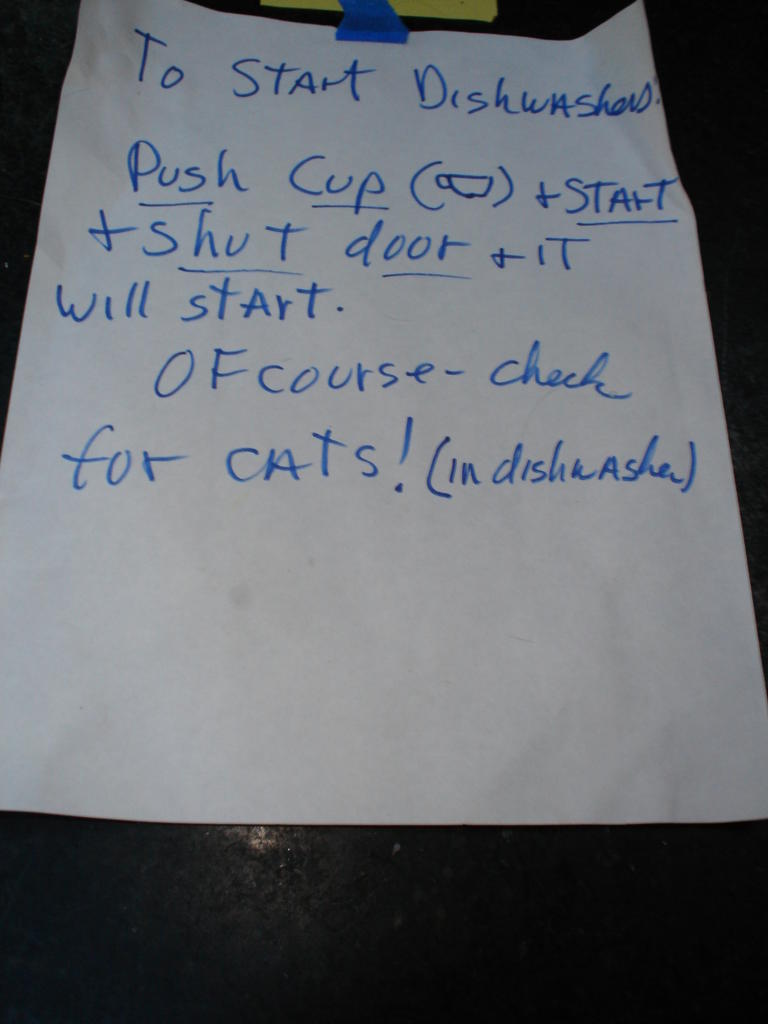 To START DishwASherS.
Push Cup ( ) + START
+ Shut door + IT
will stArt.
OF course - check
for CATS! (in dishwAsher)